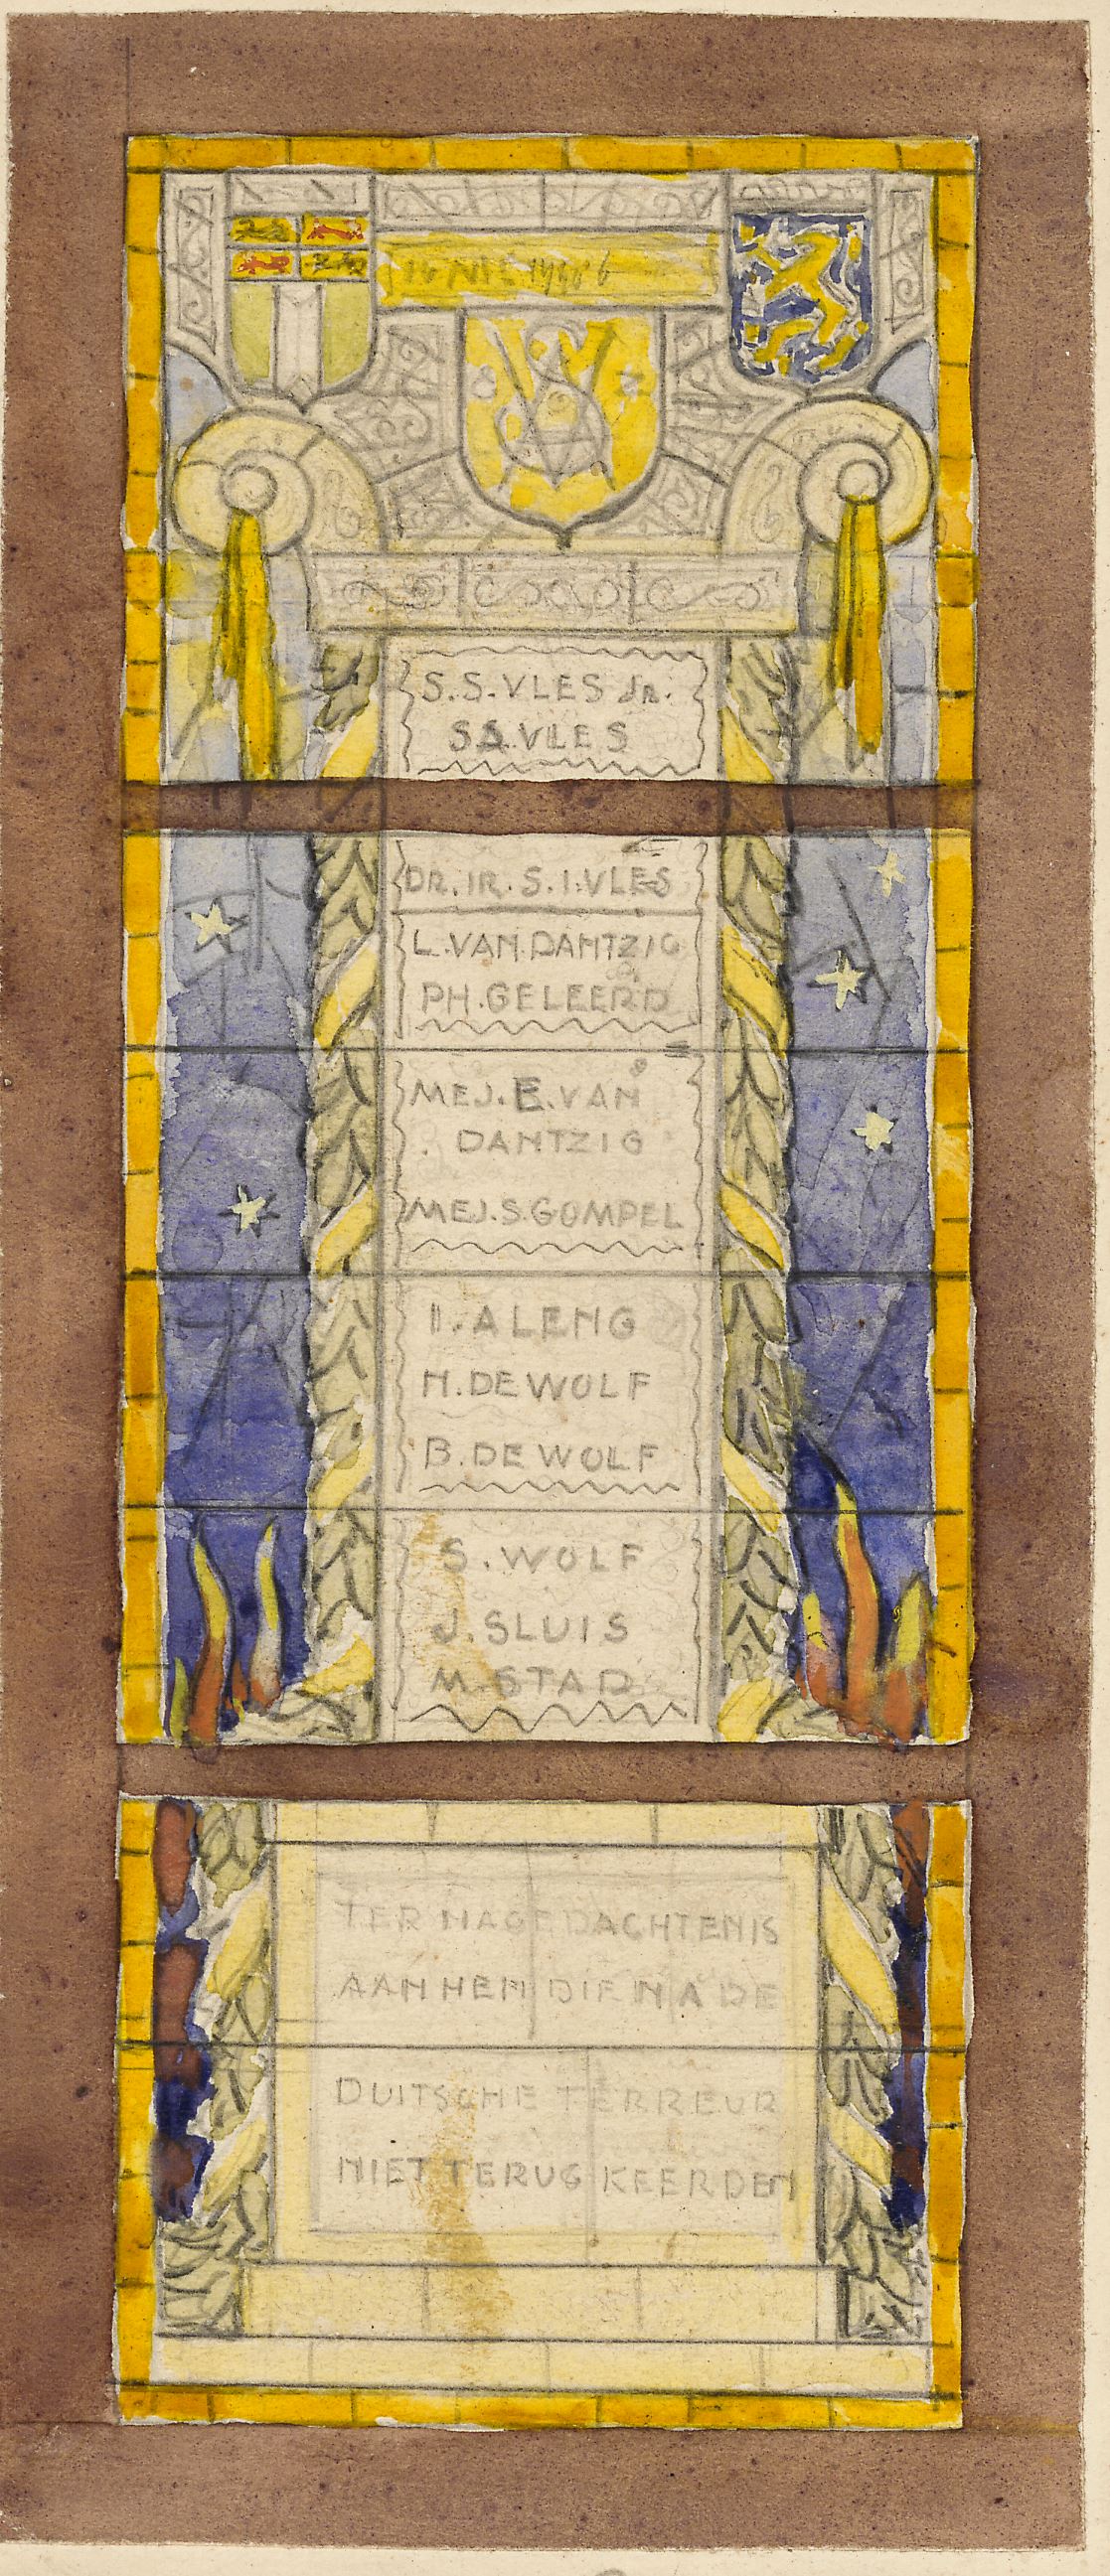 S.S.VLES Jr.
S.S.VLES
DR. IR. S. I. VLES
L. VAN DANTZIG
PH. GELEERD
MEJ. E. VAN
DANTZIG
MEJ. S. GOMPEL
I. ALENG
H. DE WOLF
B. DE WOLF
S. WOLF
J. SLUIS
M. STAD
TER NAGEDACHTENIS
AAN HEN DIE NA DE
DUITSCHE TERREUR
NIET TERUG KEERDEN